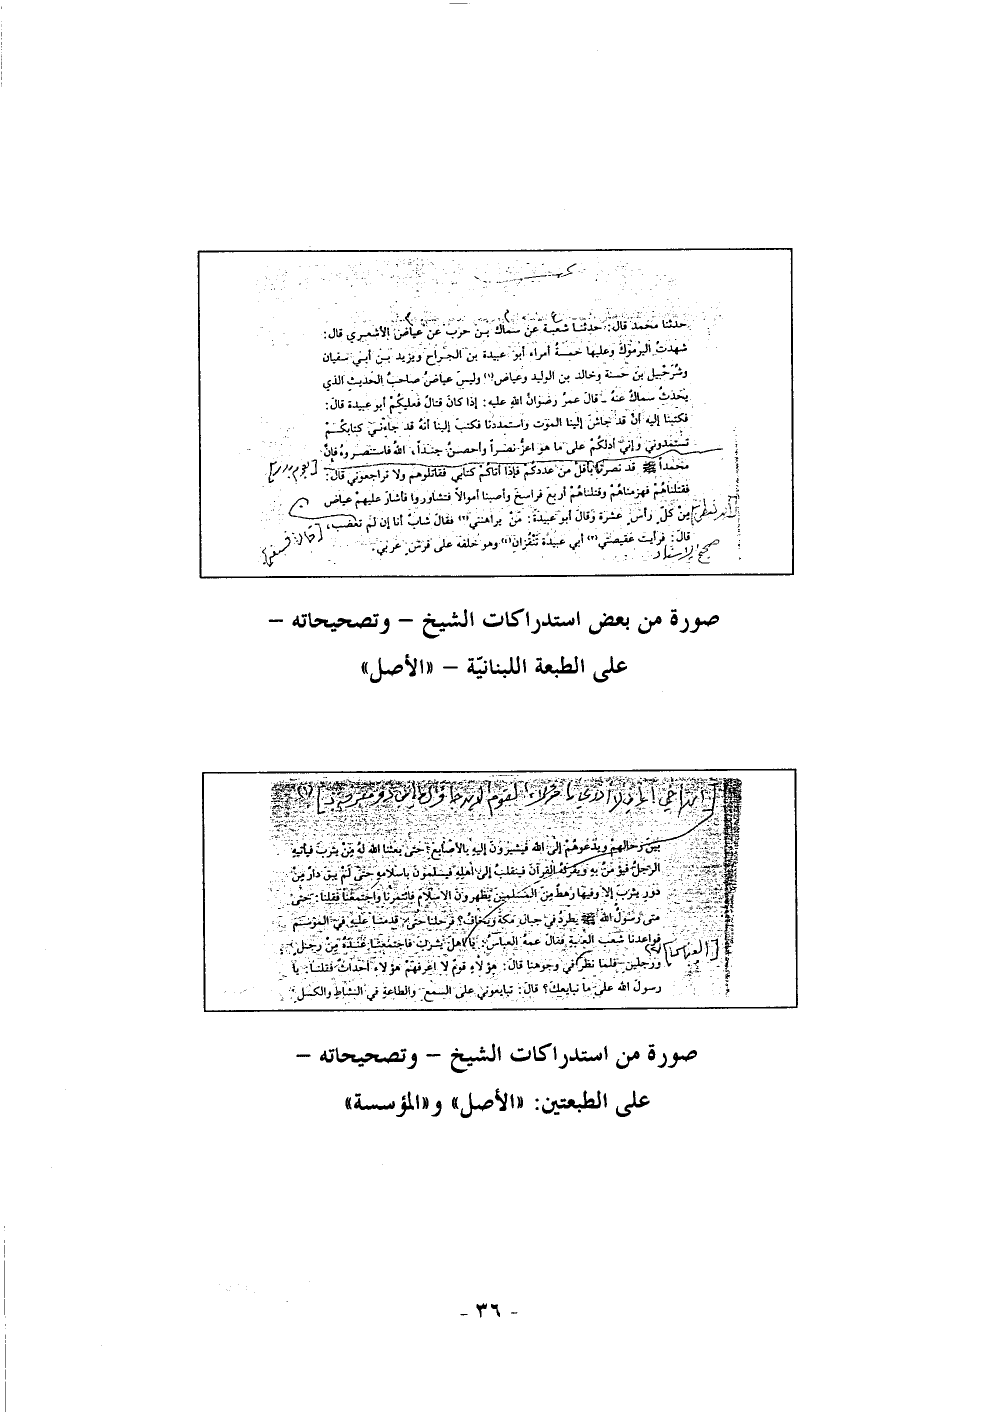 حدثنا محمد قال: حدثنا شعبة عن سماك بن حرب عن عياض الأشعري قال:
شهدتُ اليرموكَ وعليها خمسةُ أمراء أبو عبيدة بن الجراح ويزيد بن أبي سفيان
وشُرَحْبيل بن حسنة وخالد بن الوليد وعياض(١) وليس عياضُ صاحبُ الحديث الذي
يحدثُ سماكُ عنهُ - قال عمرُ رضوانُ الله عليه: إذا كانَ قتالُ فعليكُمْ أبو عبيدة قالَ:
فكتبنا إليه أنْ قد جاشَ إلينا الموت واستمددنا فكتبَ إلينا أنهُ قد جاءني كتابكُمْ
تستمدوني وإنيْ أدلكُمْ على ما هو أعزُّ نصراً وأحصنُ جنداً، اللهُ فاستنصروهُ فإنَّ
محمداً ﷺ قد نصرَ بأقلَّ من عددكُمْ فإذا أتاكُمْ كتابي فقاتلوهم ولا تراجعوني قالَ:
[يوم بدر]
فقتلناهُمْ فهزمناهُمْ وقتلناهُمْ أربعَ فراسخَ وأصبنا أموالاً فتشاوروا فأشارَ عليهمْ عياض
مِنْ كلِّ رأسٍ عشرة وقال أبو عبيدة: مَنْ يراهنني(٢) فقال شابُ أنا إن لم تغضب،
قال: فرأيت عقيصتي(٣) أبي عبيدة تَنْقُزانِ(٤) وهو خلفه على فرسٍ عربيٍ.
صحيح الإسناد
صورة من بعض استدراكات الشيخ – وتصحيحاته –
على الطبعة اللبنانيّة – «الأصل»
بينَ رحالهمْ ويدْعوهُمْ إلى الله فيشيرونَ إليهِ بالأصابع؛ حتى بعثنا الله لهُ مِنْ يثربَ فيأتيهِ
الرجلُ فيؤمنُ به ويقرئهُ القرآنَ فينقلبُ إلى أهلهِ فيسلمونَ بإسلامهِ حتى لَمْ يبقَ دارُ مِنْ
دورِ يثربَ إلا وفيها رهطٌ مِنَ المسلمينَ يُظهرونَ الإسلامَ فائتمرْنا واجتمعْنا فقلنا: حتى
متى رسولُ اللهُ ﷺ يطردُ في جبالِ مكةَ ويخافُ؟ فرحلنا حتى قدمنا عليهِ في الموسمِ
فواعدنا شعب العقبة فقال عمهُ العباسُ: يا أهلَ يثربَ فاجتمعنا عندهُ مِنْ رجلٍ
ورجلين فلما نظرَ في وجوهنا قال: هؤلاءِ قومٌ لا أعرفهمْ هؤلاءِ أحداثٌ فقلنا: يا
[العباس](٢)
رسولَ الله على ما نبايعك؟ قالَ: تبايعوني على السمعِ والطاعةِ في النشاطِ والكسلِ
صورة من استدراكات الشيخ – وتصحيحاته –
على الطبعتين: «الأصل» و«المؤسسة»
- ٣٦ -